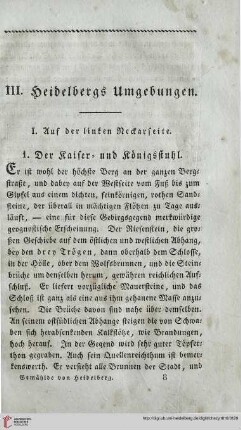 III. Heidelbergs Umgebungen.
I. Auf der linken Neckarseite.
1. Der Kaiser- und Königsstuhl.
Er ist wohl der höchste Berg an der ganzen Berg-
straße, und dabey auf der Westseite vom Fuß bis zum
Gipfel aus einem dichten, feinkörnigen, rothen Sand-
steine, der überall in mächtigen Flötzen zu Tage aus-
läuft, — eine für diese Gebirgsgegend merkwürdige
geognostische Erscheinung. Der Riesenstein, die gro-
ßen Geschiebe auf dem östlichen und westlichen Abhang,
bey den drey Trögen, dann oberhalb dem Schlosse,
in der Hölle, über dem Wolfsbrunnen, und die Stein-
brüche um denselben herum, gewähren reichlichen Auf-
schluß. Er liefert vorzügliche Mauersteine, und das
Schloß ist ganz als eine aus ihm gehauene Masse anzu-
sehen. Die Brüche davon sind nahe über demselben.
An seinem ostsüdlichen Abhange steigen die von Schwa-
ben sich heraufsenkenden Kalkflöhe, wie Brandungen,
hoch herauf. In der Gegend wird sehr guter Töpfer-
thon gegraben. Auch sein Quellenreichthum ist bemer-
kenswerth. Er versieht alle Brunnen der Stadt, und
Gemählde von Heidelberg. 8